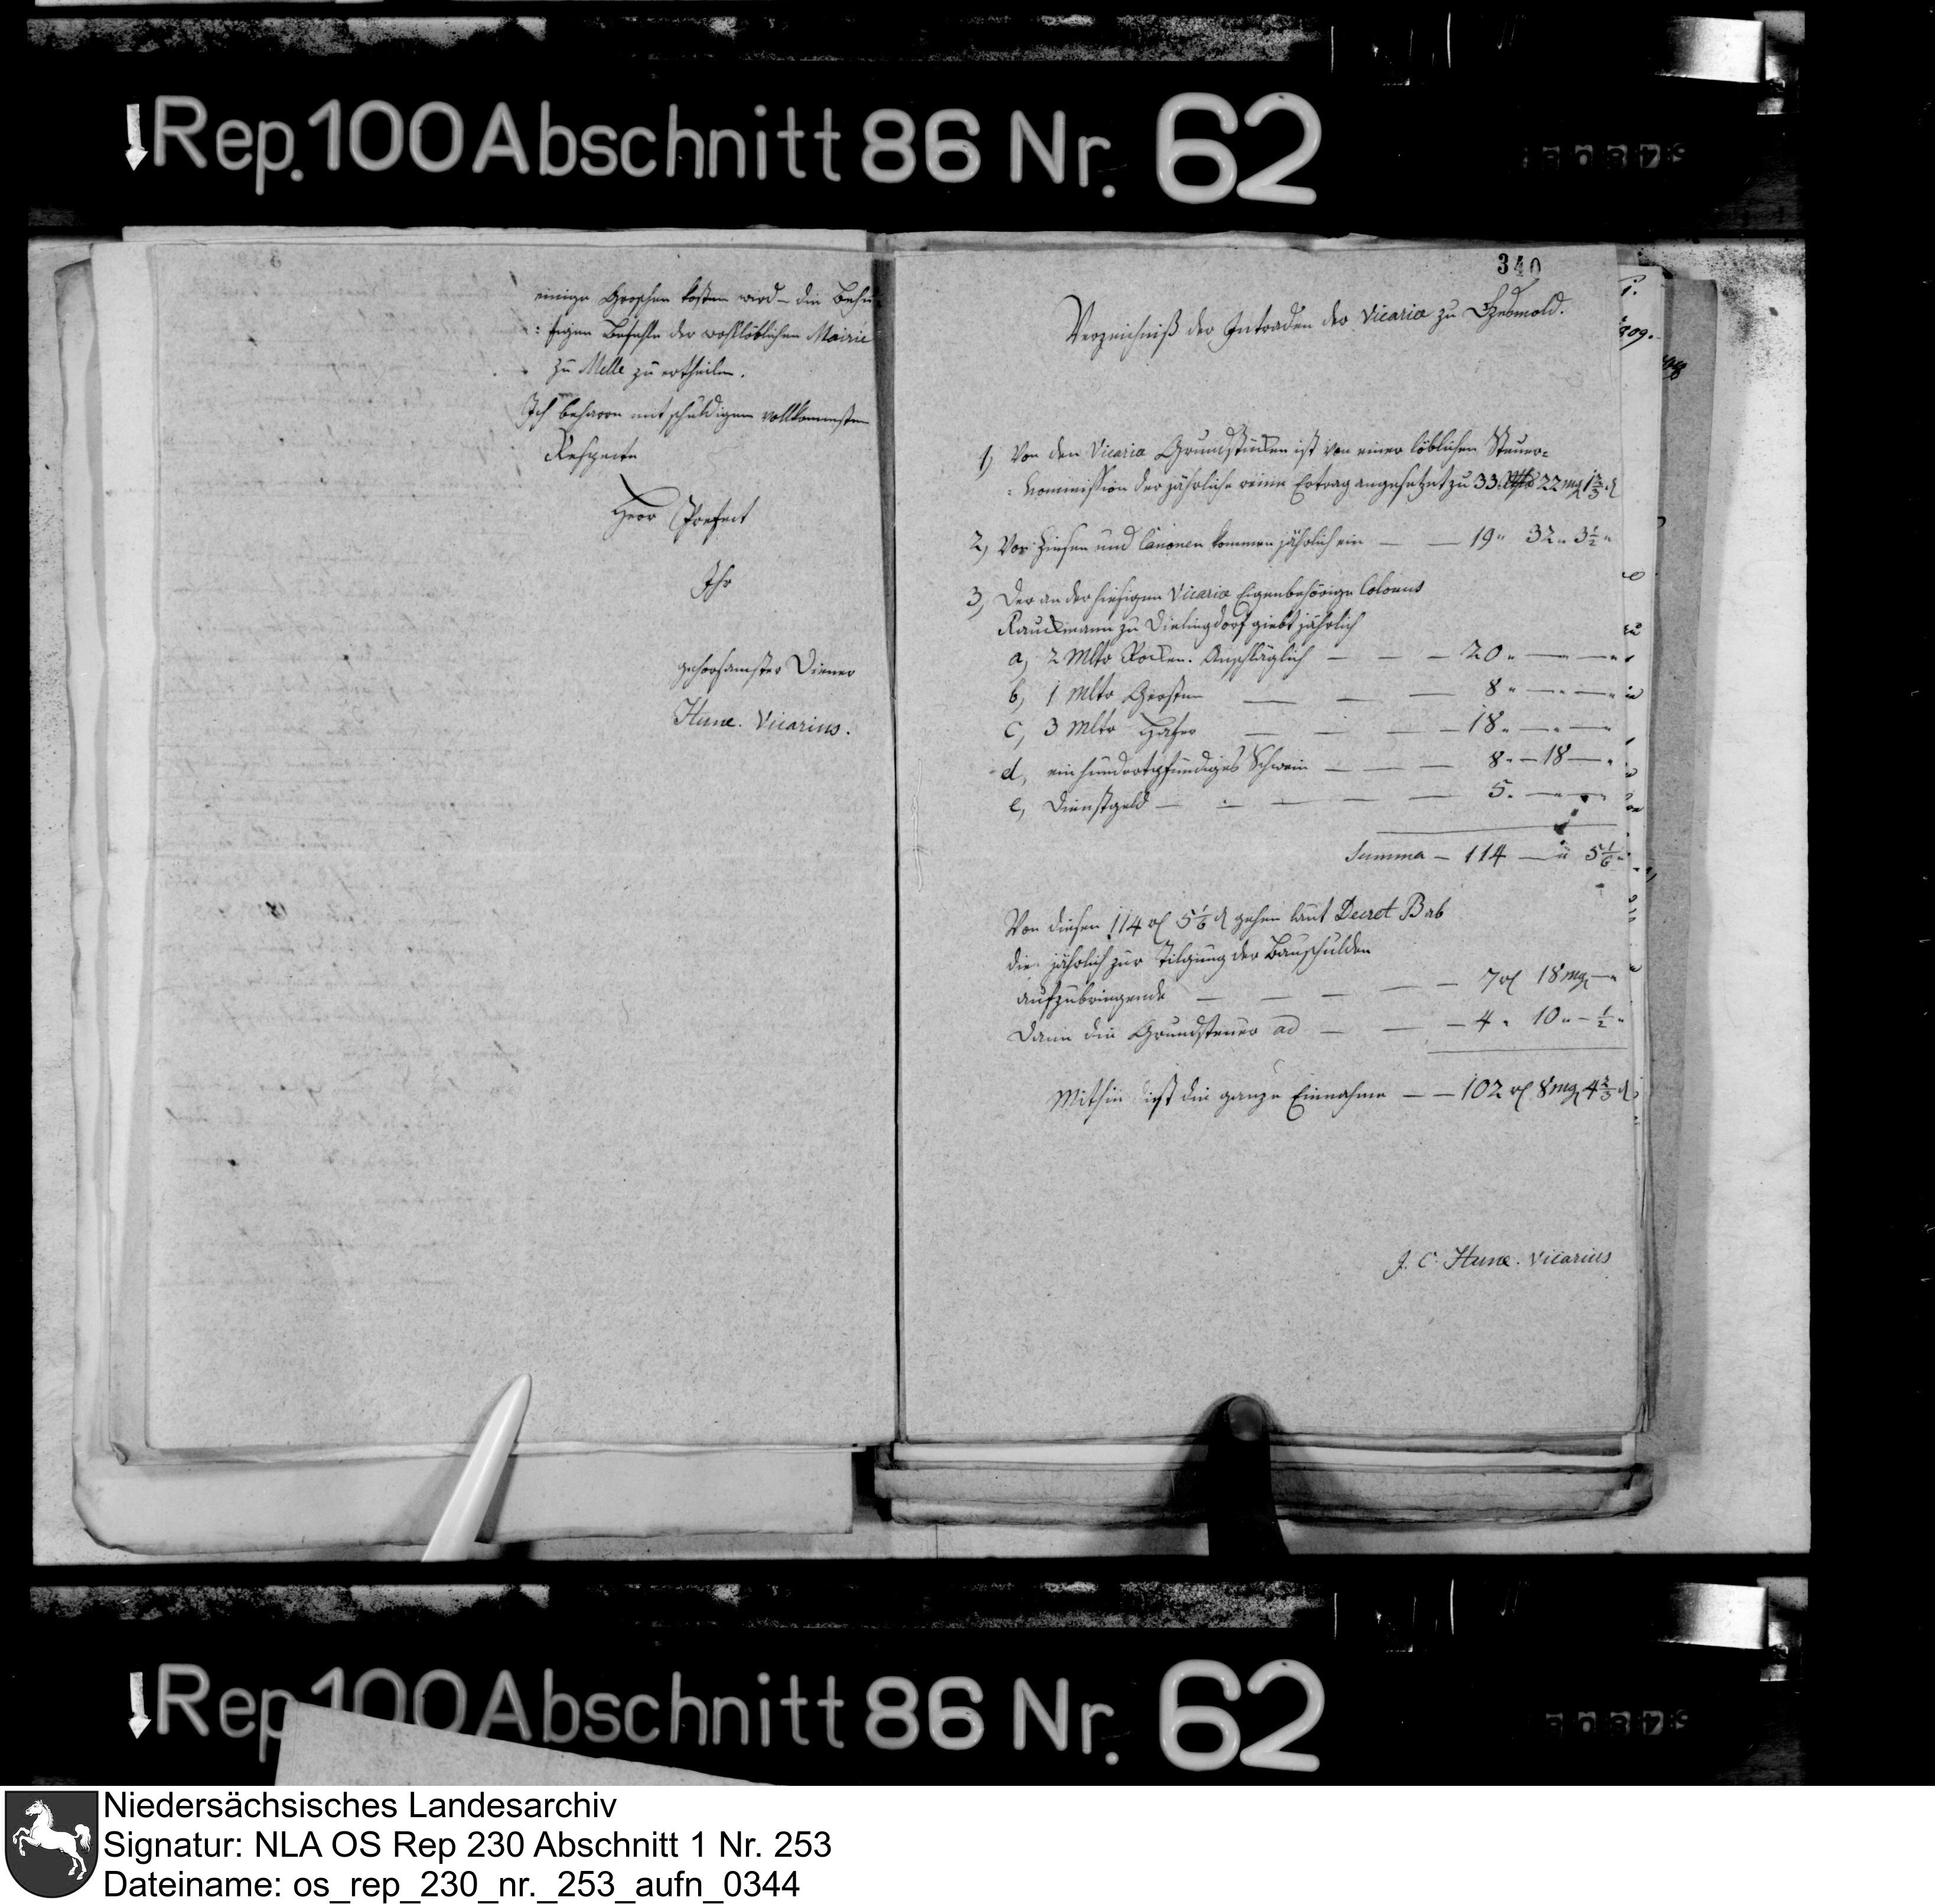 Rep. 100 Abschnitt 86 Nr. 62
einige Groschen kosten wird – die Behu-
:figen Befehle der wohllöblichen Mairie
zu Melle zu ertheilen.
Ich beharre mit schuldigem vollkommensten
Respecte
Herr Praefect
Ihr
gehorsamster Diener
Hune. Vicarius.
340
Verzeichniß der Intraden der Vicarie zu Gesmold.
1) Von den Vicarie Grundstücken ist von einer löblichen Steuer-
:kommission der jährliche reine Ertrag angesetzet zu 33 22 mg 1 2/3 d
2, Vor Zinsen und Canonen kommen jährlich ein — — 19 " 32 " 3 1/2 "
3, Der an der hiesigen Vicarie Eigenbehörige Colonus
Rauckmann zu Dielingdorf giebt jährlich
a, 2 Mltr Rocken. Anschläglich — — — 20 " — " — "
b, 1 Mltr Gersten — — — 8 " — " — "
c, 3 Mltr Hafer — — — 18 " — " — "
d, ein hundertpfündiges Schwein — — — 8 " — 18 — "
e, Dienstgeld — — — — — 5 " — " — "
Summa — 114 — " 5 1/6 "
Von diesen 114 rt 5 1/6 d gehen laut Decret B ab
die jährlich zur Tilgung der Bauschulden
aufzubringende — — — — — 7 rt 18 mg — "
Dann die Grundsteuer ad — — — 4 " 10 " — 1/2 "
Mithin ist die ganze Einnahme — — 102 rt 8 mg 4 2/3 d
J. C. Hune. Vicarius
Rep. 100 Abschnitt 86 Nr. 62
Niedersächsisches Landesarchiv
Signatur: NLA OS Rep 230 Abschnitt 1 Nr. 253
Dateiname: os_rep_230_nr._253_aufn_0344